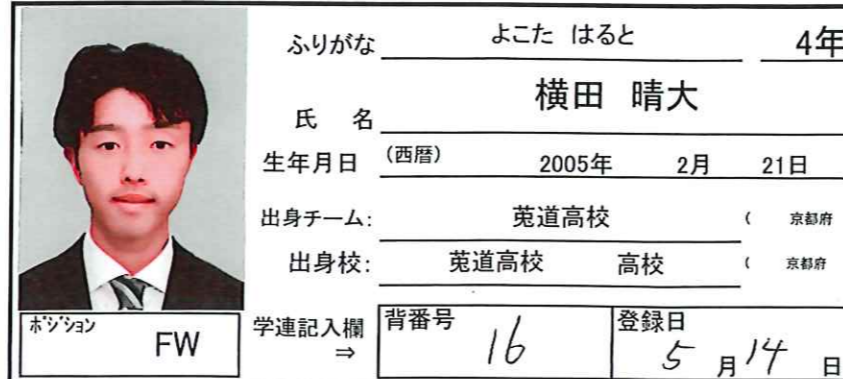 ふりがな よこた はると 4年
氏 名 横田 晴大
生年月日 (西暦) 2005年 2月 21日
出身チーム: 莵道高校 ( 京都府
出身校: 莵道高校 高校 ( 京都府
ポジション FW
学連記入欄 ⇒ 背番号 16 登録日 5 月 14 日